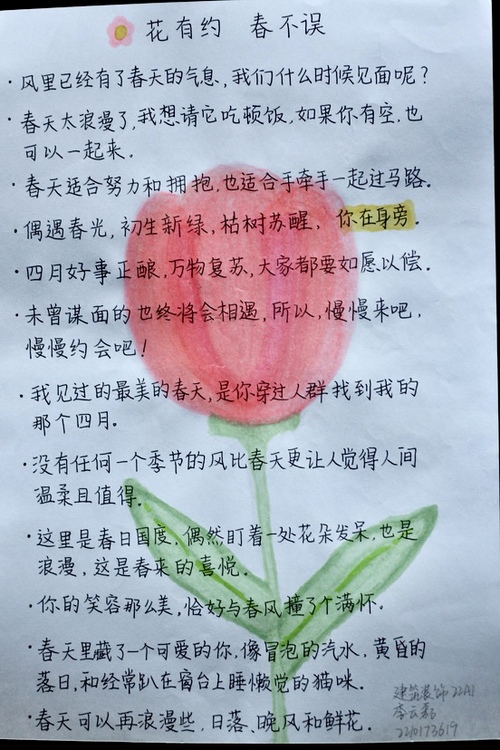 花有约 春不误
·风里已经有了春天的气息,我们什么时候见面呢?
·春天太浪漫了,我想请它吃顿饭,如果你有空,也
可以一起来.
·春天适合努力和拥抱,也适合手牵手一起过马路.
·偶遇春光,初生新绿,枯树苏醒,你在身旁.
·四月好事正酿,万物复苏,大家都要如愿以偿.
·未曾谋面的也终将会相遇,所以,慢慢来吧,
慢慢约会吧!
·我见过的最美的春天,是你穿过人群找到我的
那个四月.
·没有任何一个季节的风比春天更让人觉得人间
温柔且值得.
·这里是春日国度,偶然盯着一处花朵发呆,也是
浪漫,这是春来的喜悦.
·你的笑容那么美,恰好与春风撞了个满怀.
·春天里藏了一个可爱的你,像冒泡的汽水,黄昏的
落日,和经常趴在窗台上睡懒觉的猫咪.
·春天可以再浪漫些,日落、晚风和鲜花.
建筑装饰22A1
李云
220173619